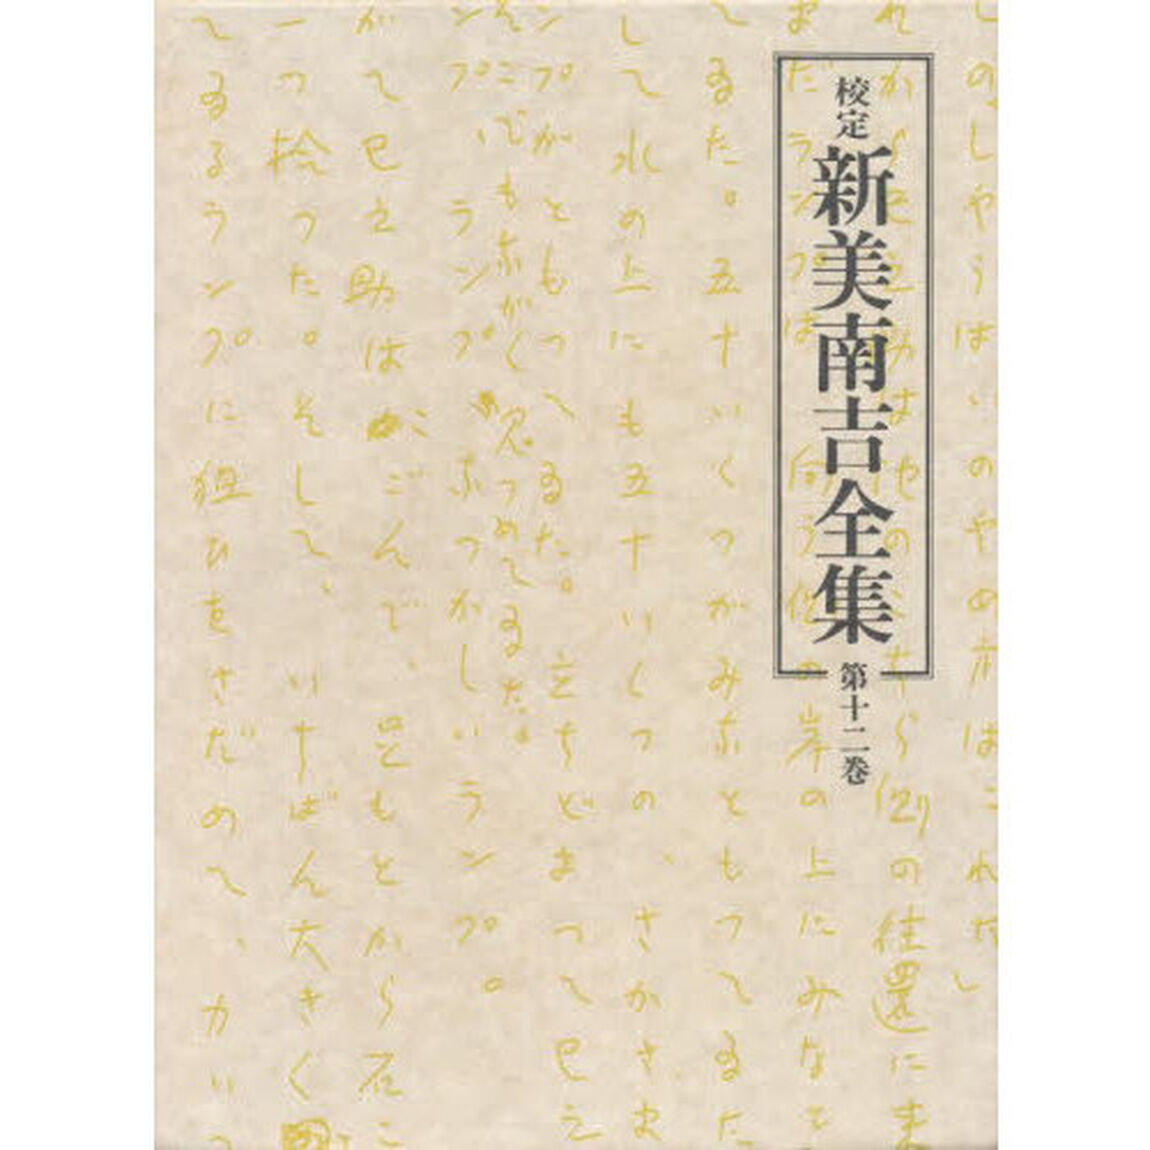 校定
新美南吉全集
第十二巻
のしやうばいのやめ方はこれだ
れから巳之助は池のこちら側の往還に来
まだランプは向う側の岸の上にみなと
てゐた。五十いくつがみなともつてゐた
して水の上にも五十いくつの、さかさま
ンプがともつてゐた。立ちどまつて巳之
こでもながく見つめてゐた。
ンプ、ランプ、なつかしいランプ。
がて巳之助はかゞんで、足もとから石こ
一つ拾つた。そして、いちばん大きく
てゐるランプに狙ひをさだめて、力いつ